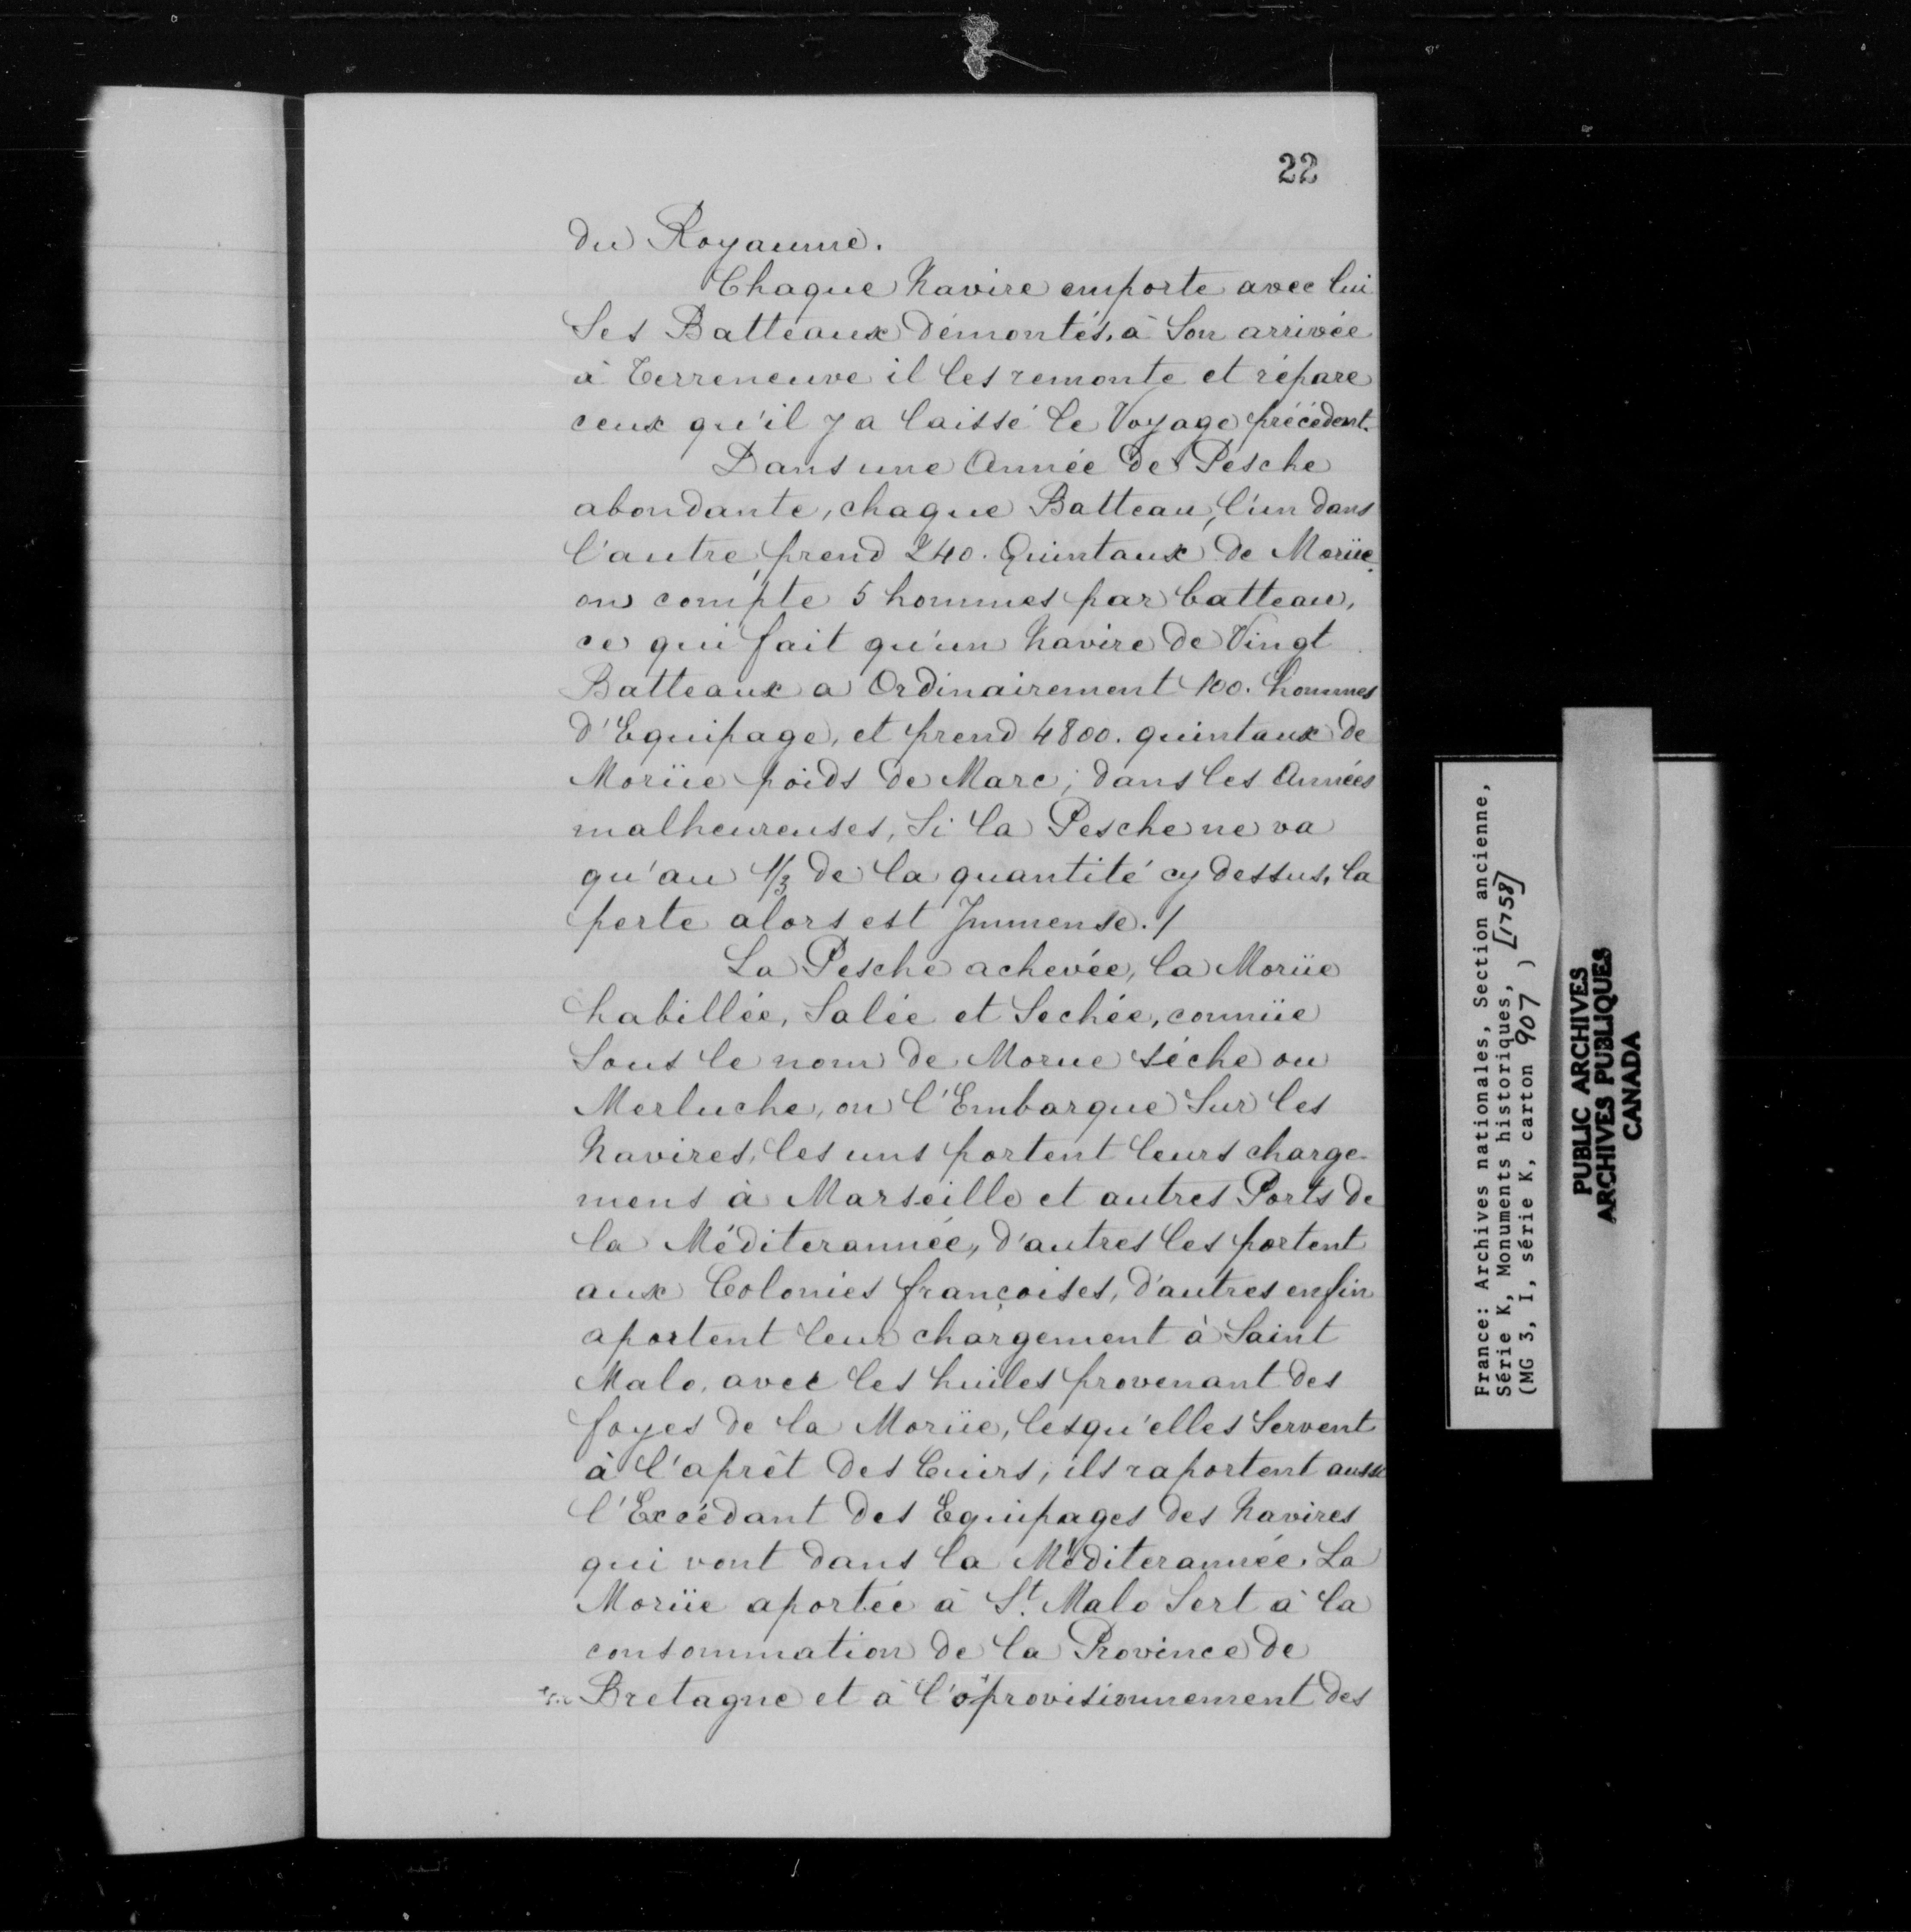 22
du Royaume.
Chaque Navire emporte avec lui
Ses Batteaux démontés, à Son arrivée
à Terreneuve il les remonte et répare
ceux qu'il y a laissé le Voyage précédent.
Dans une Année de Pesche
abondante, chaque Batteau, l'un dans
l'autre, prend 240. Quintaux de Morüe.
on compte 5 hommes par batteau,
ce qui fait qu'un Navire de Vingt
Batteaux a Ordinairement 100. hommes
d'Equipage, et prend 4800. quintaux de
Morüe poids de Marc; dans les Années
malheureuses, Si la Pesche ne va
qu'au 1/3 de la quantité cy dessus, la
perte alors est Immense./
La Pesche achevée, la Morüe
habillée, Salée et Sechée, connüe
Sous le nom de Morue sèche ou
Merluche, on l'Embarque Sur les
Navires, les uns portent leurs charge-
mens à Marseille et autres Ports de
la Méditerannée, d'autres les portent
aux Colonies françoises, d'autres enfin
aportent leur chargement à Saint
Malo, avec les huiles provenant des
foyes de la Morüe, lesqu'elles Servent
à l'aprêt des Cuirs; ils raportent aussi
l'Excédant des Equipages des Navires
qui vont dans la Méditerannée. La
Morüe aportée à St. Malo Sert à la
consommation de la Province de
Bretagne et à l'aprovisionnement des
France: Archives nationales, Section ancienne,
Série K, Monuments historiques, [1758]
(MG 3, I, série K, carton 907 )
PUBLIC ARCHIVES
ARCHIVES PUBLIQUES
CANADA